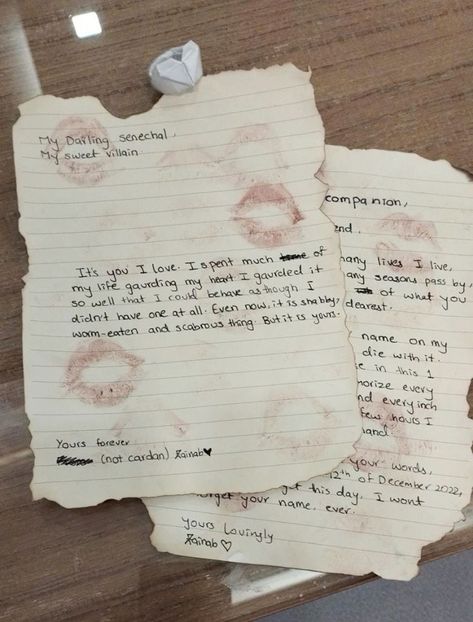 My Darling senechal,
My sweet villain
It's you I love. I spent much of
my life gaurding my heart. I gaurded it
so well that I could behave as though I
didn't have one at all. Even now, it is shabby,
worm-eaten and scabrous thing. But it is yours.
Yours forever
(not cardan) Zainab
companion,
many lives I live,
any seasons pass by,
of what you
dearest.
name on my
die with it.
in this 1
every
and every inch
few hours I
your words,
12th of December 2022,
this day. I wont
your name, ever.
Yours Lovingly
Zainab